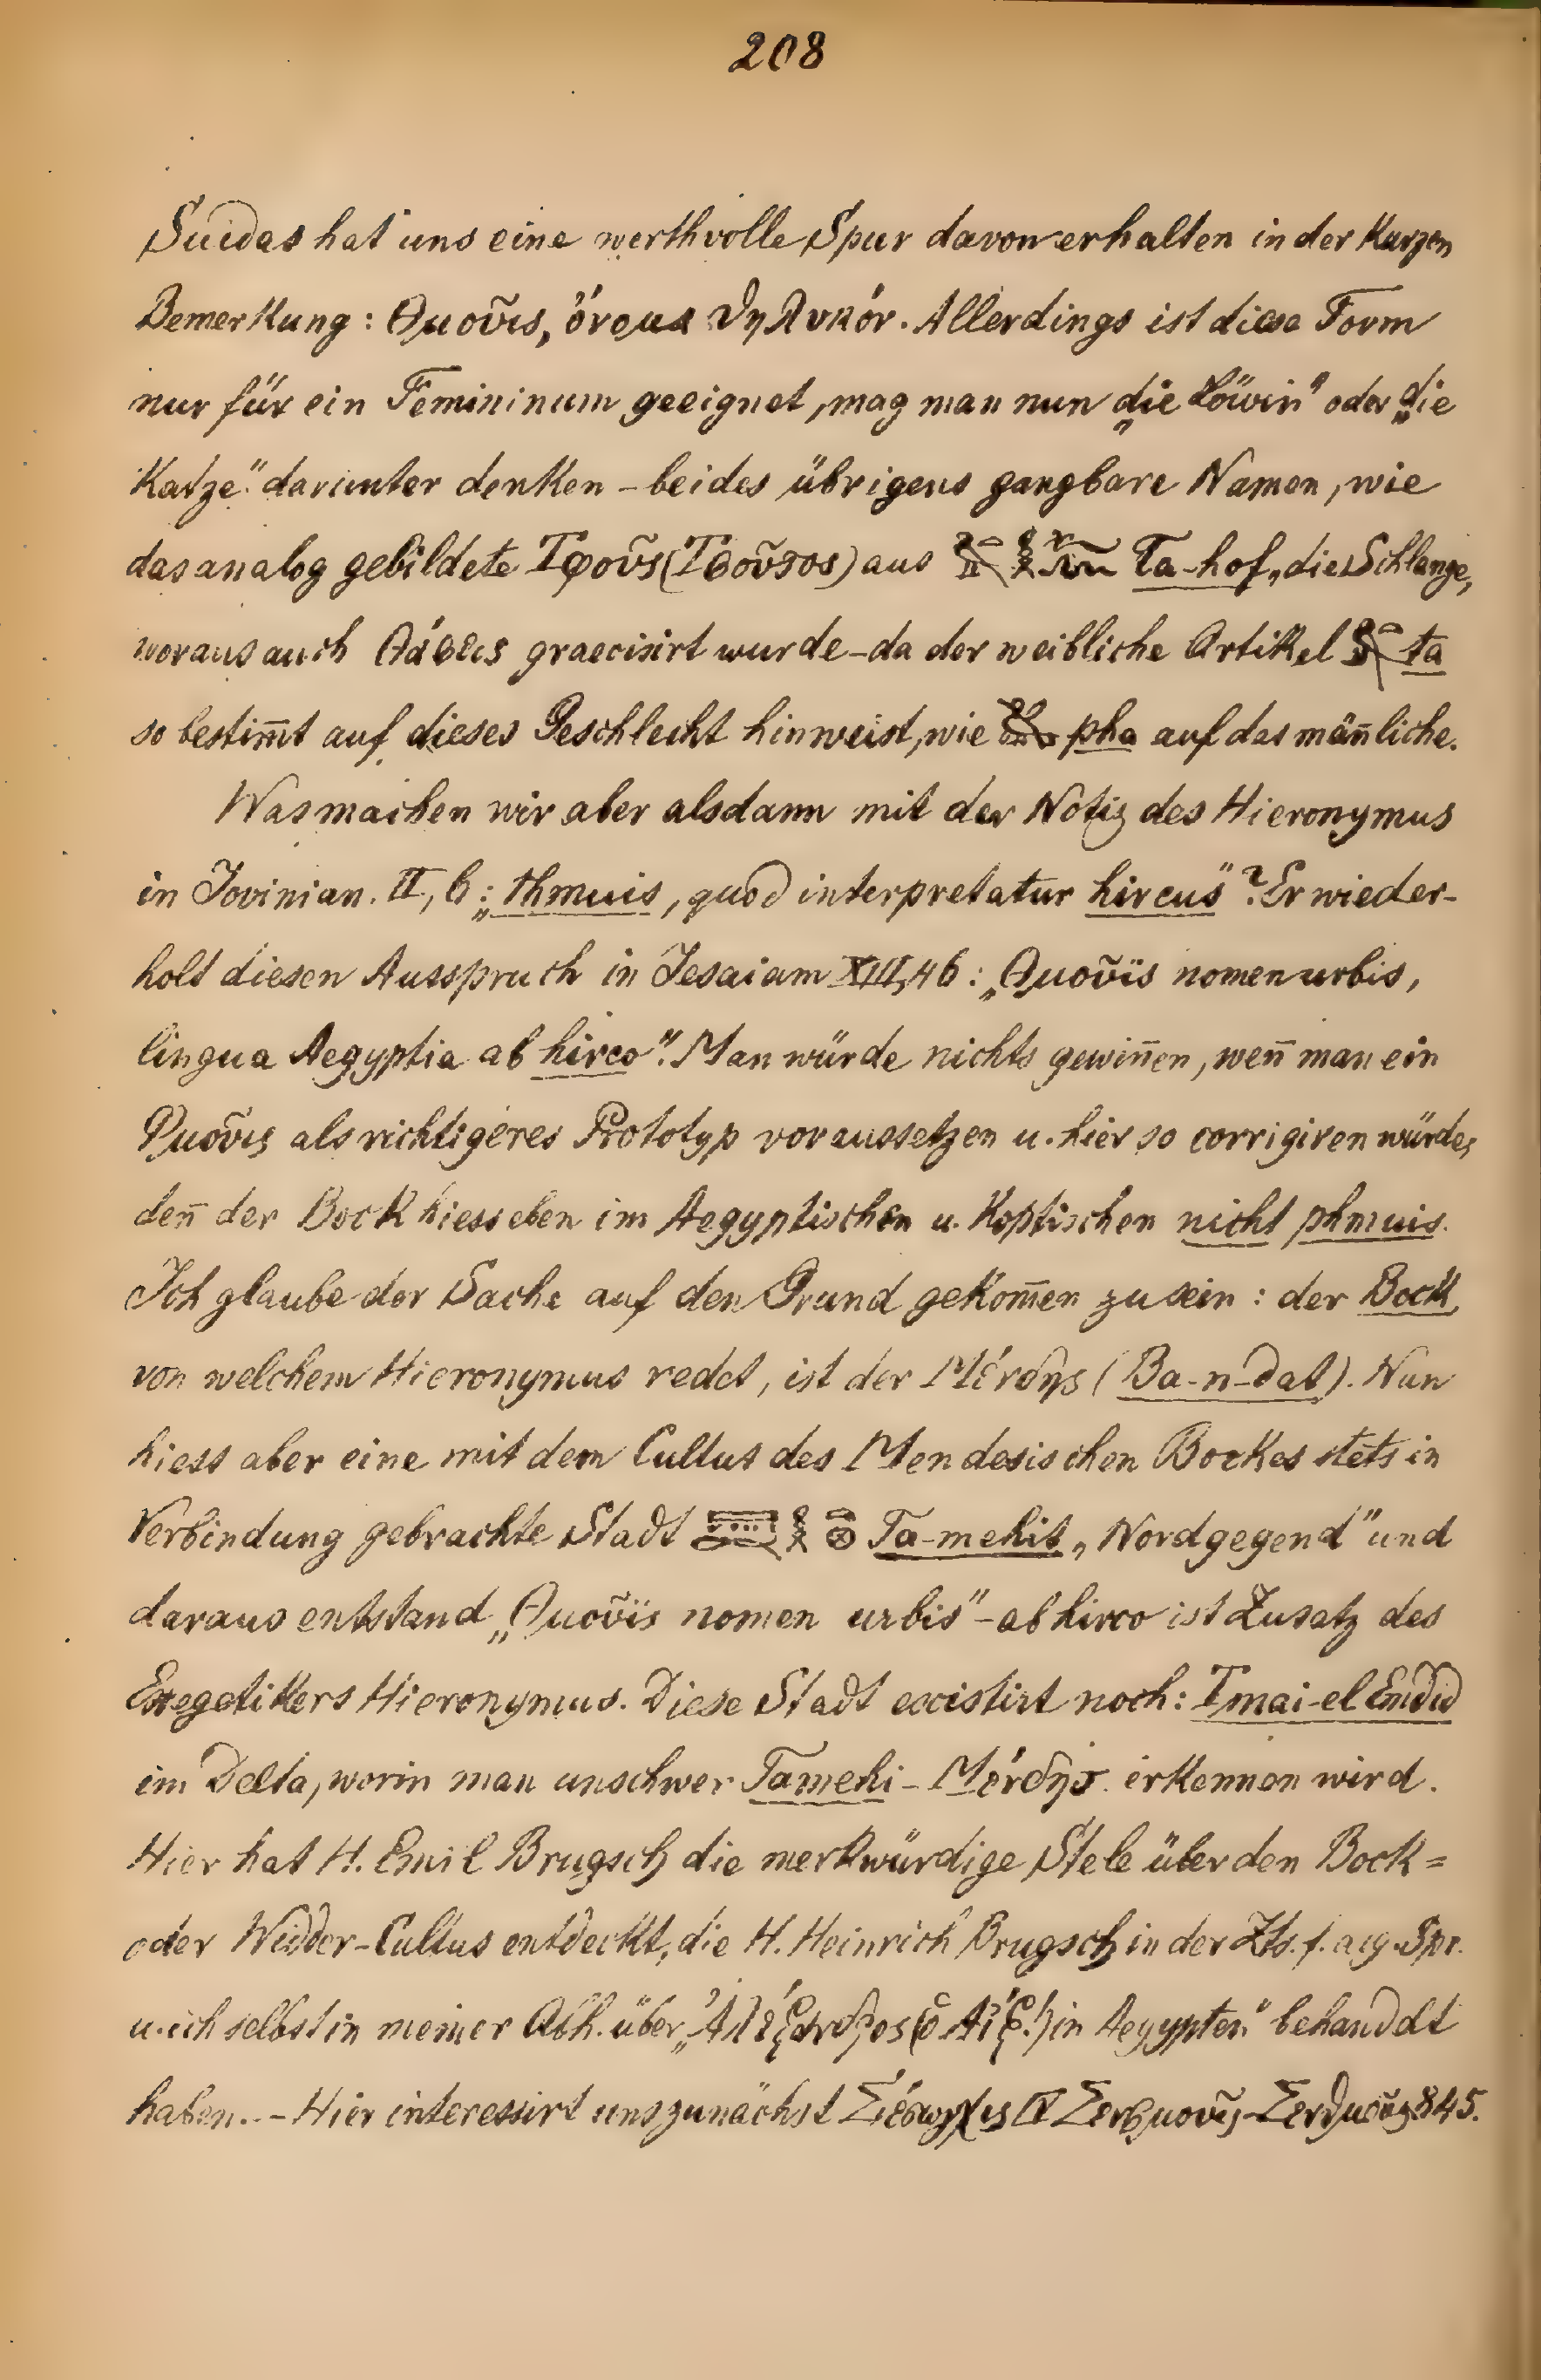 208
Suidas hat uns eine werthvolle Spur davon erhalten in der Kurzen
Bemerkung: Θμοῦις, ὄνομα θηλυκόν. Allerdings ist diese Form
nur für ein Femininum geeignet, mag man nun „die Löwin" oder „die
Katze" darunter denken – beides übrigens gangbare Namen, wie
das analog gebildete Τφοῦς (Τβοῦτος) aus Ta-hof „die Schlange,
woraus auch graecisirt wurde – da der weibliche Artikel ta
so bestim̅t auf dieses Geschlecht hinweist, wie pha auf das män̅liche.
Was machen wir aber alsdann mit der Notiz des Hieronymus
in Jovinian. II, 6: „thmuis, quod interpretatur hircus"? Er wieder-
holt diesen Ausspruch in Jesaiam XIII, 46: „Θμοῦϊς nomen urbis,
lingua Aegyptia ab hirco". Man würde nichts gewin̅en, wen̅ man ein
Φμοῦις als richtigeres Prototyp voraussetzen u. hier so corrigiren würde,
den̅ der Bock hiess eben im Aegyptischen u. Koptischen nicht phmuis.
Ich glaube der Sache auf den Grund gekom̅en zu sein: der Bock,
von welchem Hieronymus redet, ist der Μένδης (Ba-n-dat). Nun
hiess aber eine mit dem Cultus des Mendesischen Bockes stets in
Verbindung gebrachte Stadt Ta-mehit „Nordgegend" und
daraus entstand „Θμοῦϊς nomen urbis" – ab hirco ist Zusatz des
Exegetikers Hieronymus. Diese Stadt existirt noch: Tmai-el Emdid
im Delta, worin man unschwer Tamehi-Μένδης erkennen wird.
Hier hat H. Emil Brugsch die merkwürdige Stele über den Bock=
oder Widder-Cultus entdeckt, die H. Heinrich Brugsch in der Zts. f. aeg. Spr.
u. ich selbst in meiner Abh. über „Ἀλέξανδρος (ὁ Αἴξ!) in Aegypten" behandelt
haben. – Hier interessirt uns zunächst IV 845.